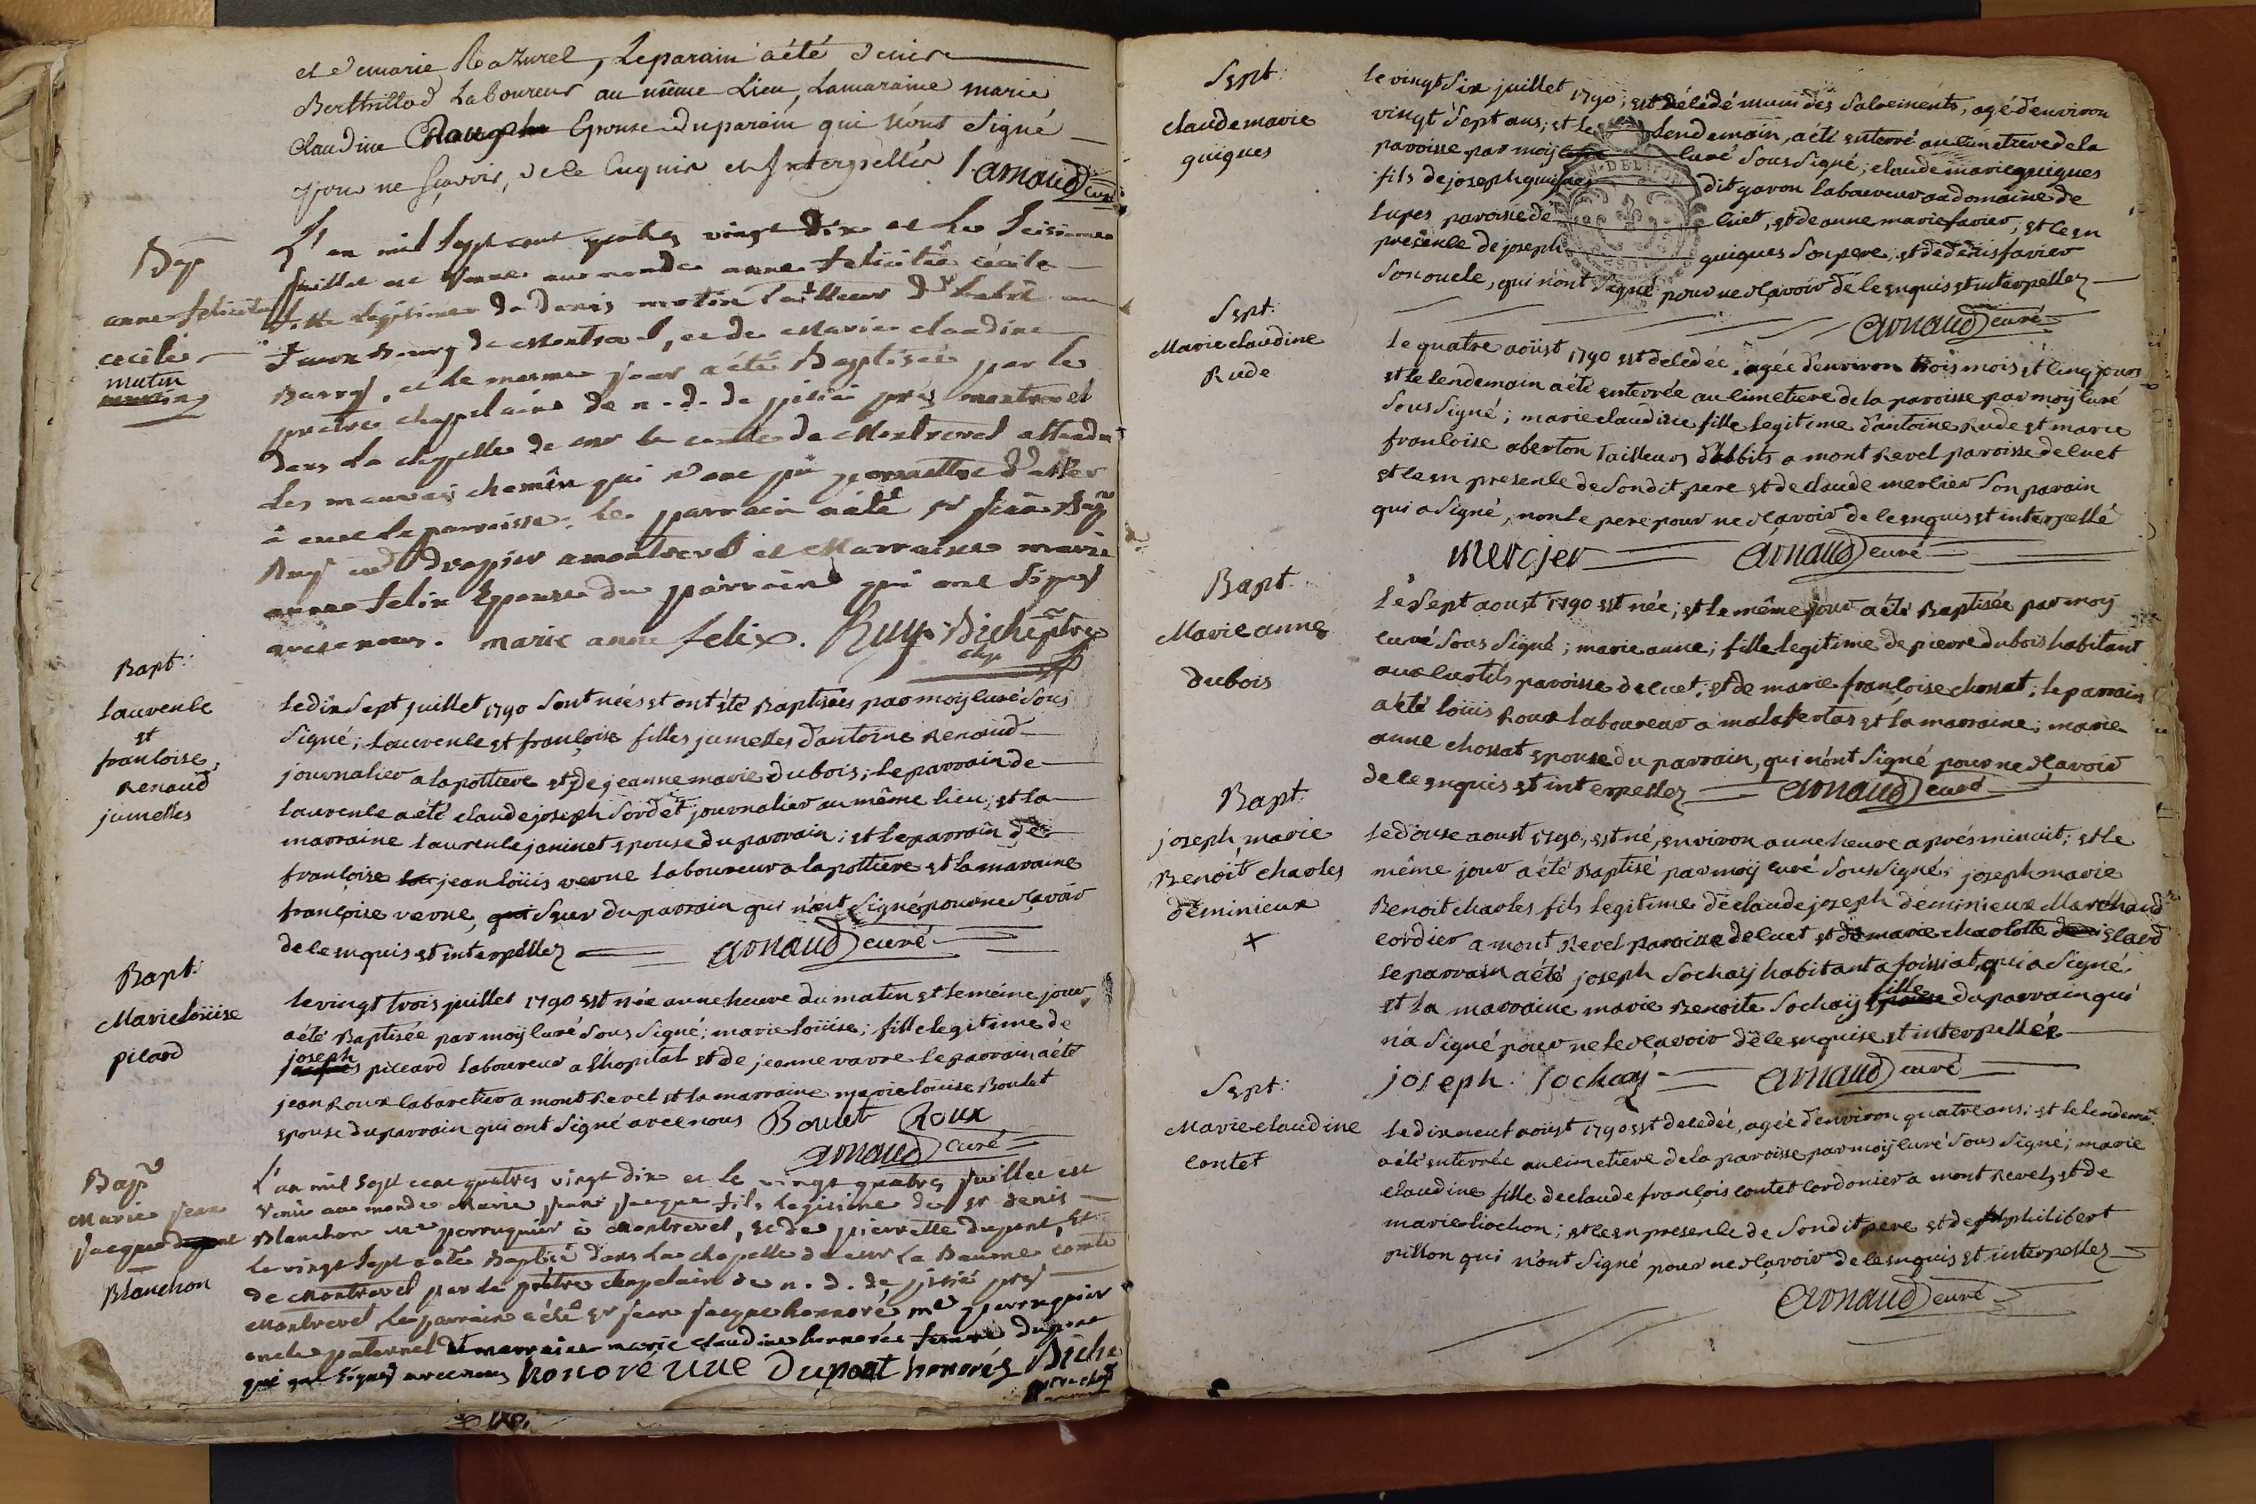 et de marie Razurel, Le parain a été denis
Berthillod Laboureur au même Lieu, La maraine marie
Claudine Epouse du parain qui n'ont Signé
pour ne sçavoir, de ce Enquis et Interpellés Arnaud curé
Bap
anne felicité
cecile
mutin
L'an mil Sept cent quatres vingt dix et Le Seisieme
juillet est venue au monde anne felicitée cécile
fille legitime de denis mutin tailleur d'habit au
faux Bourg de Montrevel, et de Marie claudine
Barry, et le mesme jour a été Baptisée par le
pretre chapelain de n. d. de pitié prés montrevel
dans La chapelle de mr le comte de Montrevel attendu
Les mauvais chemin qui n'ont pu permettre d'aller
à cuet La parroisse. Le parrain a été sr jean Bap
Ruy md drapier a montrevel et Marraine marie
anne felix Epouse du parrain qui ont Signés
avec nous. marie anne felix. Ruy. Biche ptre
chap
Bapt:
Laurence
et
francoise,
Renaud
jumelles
Le dix Sept juillet 1790 Sont nées et ont été Baptisées par moÿ curé Sous
Signé; Laurence et françoise filles jumelles d'antoine Renaud
journalier a la pottiere et de jeanne marie dubois; Le parrain de
Laurence a été claude joseph Sordet journalier au même lieu, et la
marraine Laurence janinet epouse du parrain; et Le parrain de
françoise jean Loüis verne laboureur a la pottiere et la maraine
françoise verne, Sœur du parrain qui n'ont Signé pour ne sçavoir
de ce enquis et interpellez Arnaud curé
Bapt:
Marie loüise
picard
Le vingt trois juillet 1790 est née a une heure du matin et le même jour
a été Baptisée par moÿ curé Sous Signé; marie loüise; fille legitime de
joseph piccard laboureur a l'hopital et de jeanne varre le parrain a été
jean Roux cabaretier a mont Revel et la marraine marie loüise Boulet
epouse du parrain qui ont Signé avec nous Boulet Roux
Arnaud curé
Bapt
Marie jean
jacque
Blanchon
L'an mil Sept cent quatres vingt dix et le vingt quatres juillet est
venu au monde Marie jean jacque fils legitime de sr denis
Blanchon me perruquier à Montrevel, et de pierrette dupont, et
le vingt Sept a été Baptisé dans La chapelle de mr La Baume comte
de Montrevel par le prêtre chapelain de n. d. de pitié prés
Montrevel Le parrain a été sr jean jacque honnoré me perruquier
oncle paternel et marraine marie claudine honnorée femme dupont
qui ont Signés avec nous honoré une Dupont honorés Biche
Sept:
claude marie
guigues
Le vingt Six juillet 1790; est décédé muni des Sacrements, agé d'environ
vingt Sept ans; et le lendemain, a été enterré au cimetiere de la
paroisse par moÿ curé Sous Signé; claude marie guigues
fils de joseph guigues dit gavon laboureur au domaine de
Lupes paroisse de cuet, et de anne marie favier, et ce en
presence de joseph guigues Son pere, et de denis favier
Son oncle, qui n'ont Signé pour ne sçavoir de ce enquis et interpellez
Arnaud curé
Sept:
Marie claudine
Rude
Le quatre aoüst 1790 est décédée agée d'environ trois mois et cinq jours
et le lendemain a été enterrée au cimetiere de la paroisse par moÿ curé
Sous Signé; marie claudine fille legitime d'antoine Rude et marie
françoise aberton Tailleurs d'habits a mont Revel paroisse de cuet
et ce en presence de Son dit pere et de claude mercier Son parain
qui a Signé, non le pere pour ne sçavoir de ce enquis et interpellé
mercjer Arnaud curé
Bapt:
Marie anne
dubois
Le Sept aoust 1790 est née; et le même jour a été Baptisée par moÿ
curé Sous Signé; marie anne; fille legitime de pierre dubois habitant
aux curtils paroisse de cuet, et de marie françoise chossat; le parrain
a été loüis Roux laboureur a malafertas et la marraine; marie
anne chossat epouse du parrain, qui n'ont Signé pour ne sçavoir
de ce enquis et interpellez Arnaud curé
Bapt:
joseph marie
Benoit charles
déminieux
Le douse aoust 1790, est né, environ a une heure aprés minuit; et le
même jour a été Baptisé par moÿ curé Sous Signé; joseph marie
Benoit charles fils legitime de claude joseph déminieux Marchand
cordier a mont Revel paroisse de cuet et de marie charlotte
le parrain a été joseph Sochaÿ habitant a foissiat, qui a Signé,
et la marraine marie Benoite Sochaÿ fille du parrain qui
n'a Signé pour ne le sçavoir de ce enquise et interpellée
joseph. sochay Arnaud curé
Sept:
Marie claudine
contet
Le dix neuf aoüst 1790 est décédée, agée d'environ quatre ans; et le lendemn.
a été enterrée au cimetiere de la paroisse par moÿ curé Sous Signé; marie
claudine fille de claude françois contet cordonier a mont Revel, et de
marie liochon; et ce en presence de Son dit pere et de philibert
pillon qui n'ont Signé pour ne sçavoir de ce enquis et interpellez
Arnaud curé